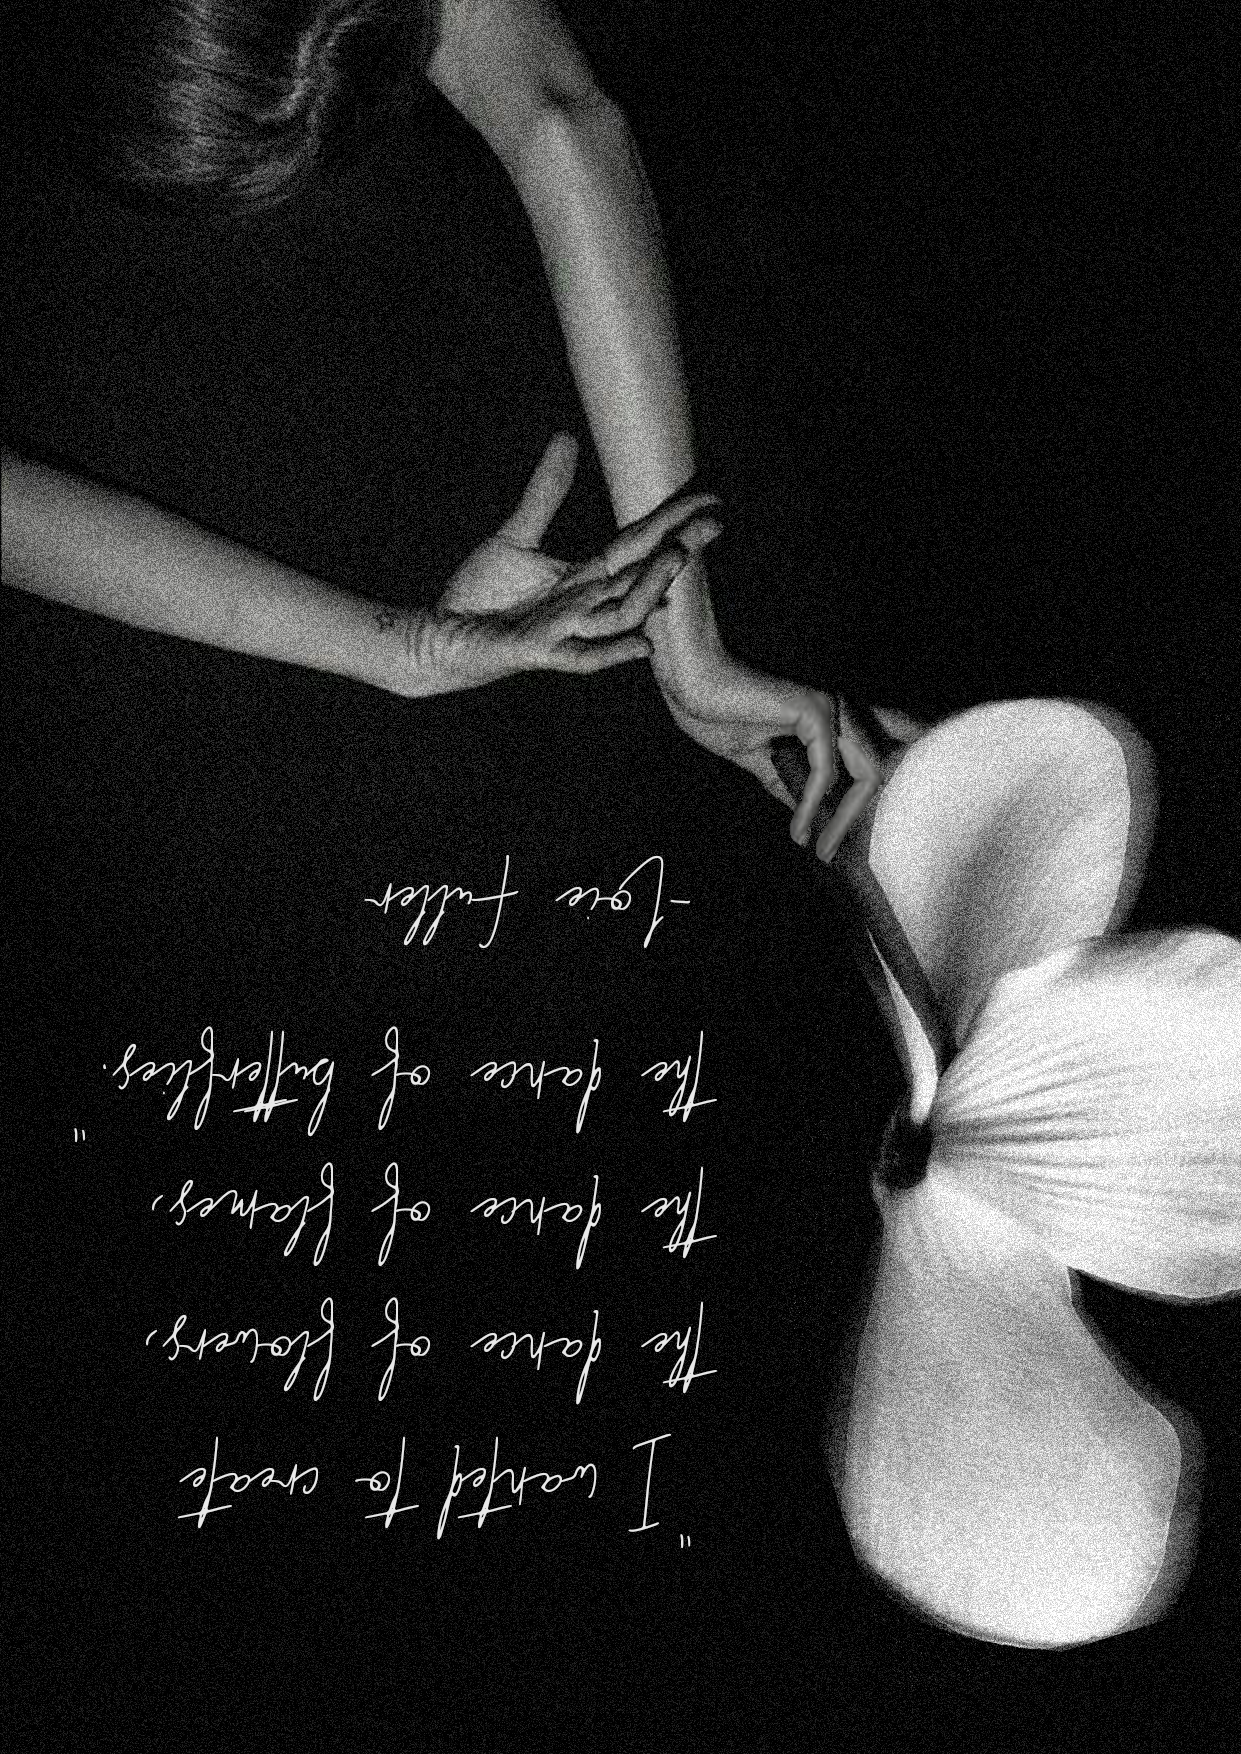 "I wanted to create
the dance of flowers,
the dance of flames,
the dance of butterflies."
-Loie Fuller